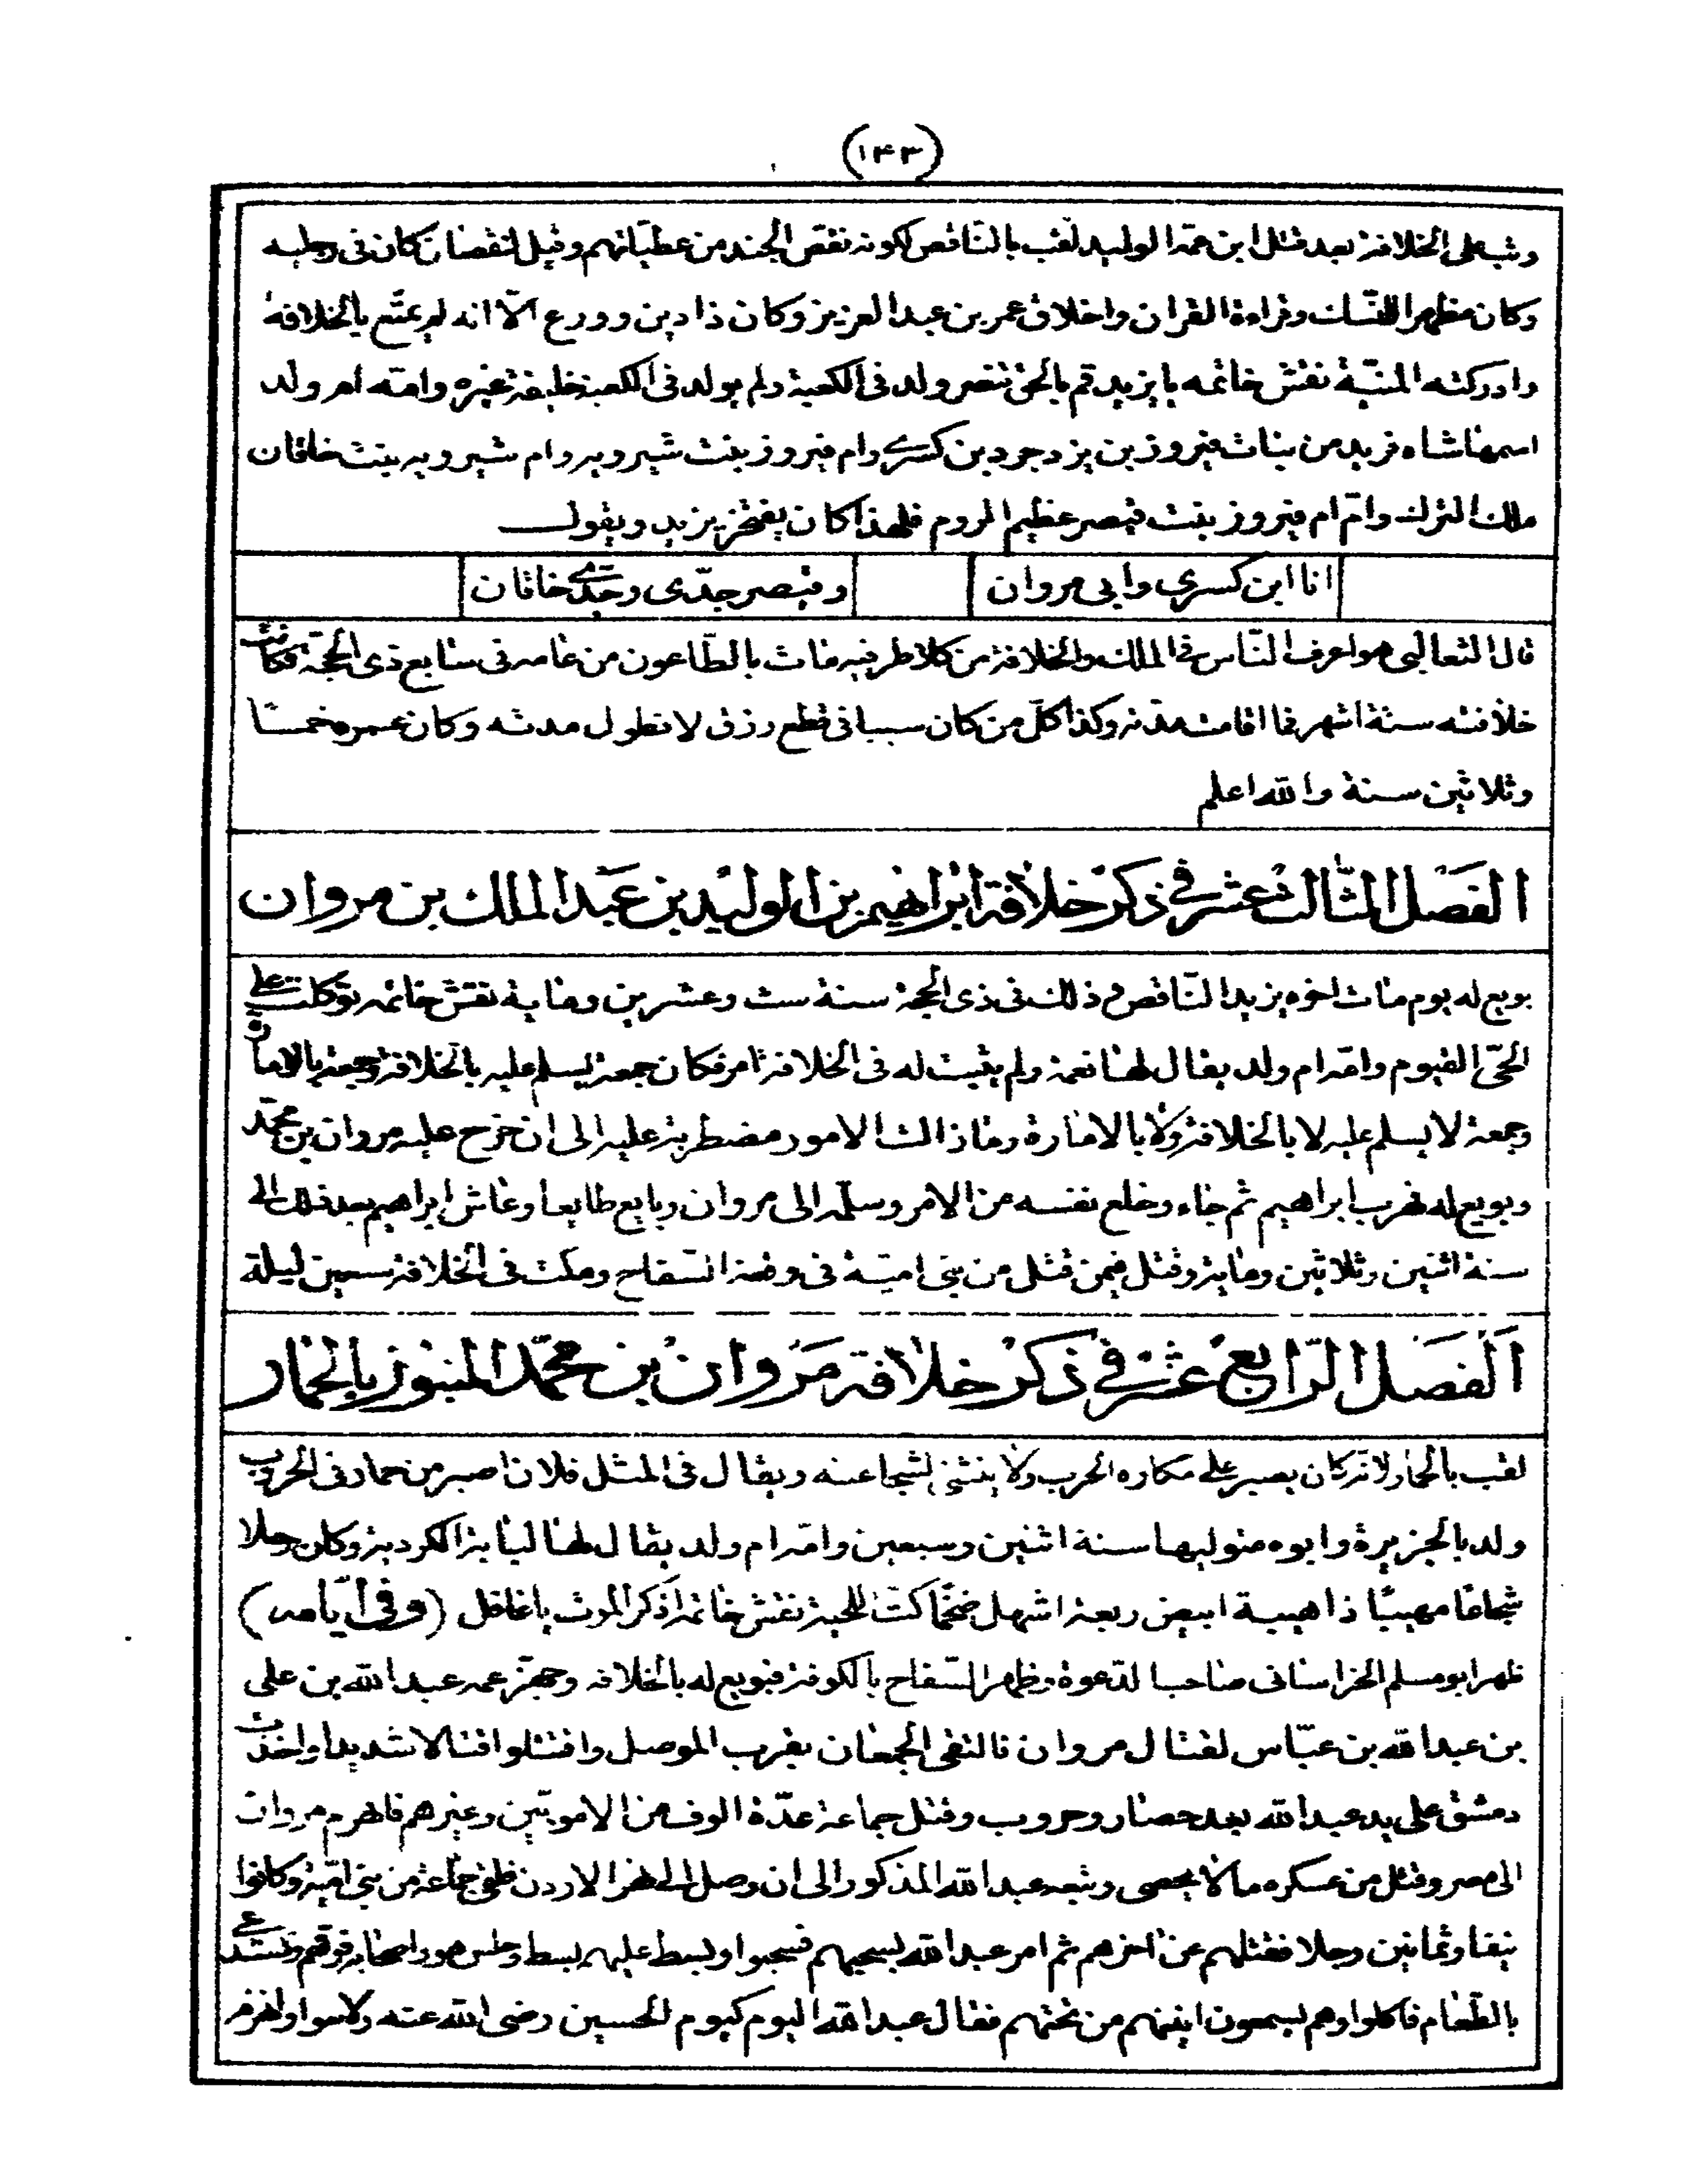 (١٤٣)
وثب على الخلافة بعد قتل ابن عمه الوليد لقب بالناقص لكونه نقص الجند من عطياتهم وقيل لنقصان كان في رجليه
وكان مظهرا للنسك وقراءة القران واخلاق عمر بن عبد العزيز وكان ذا دين وورع الّا انه لم يمتّع بالخلافة
وادركته المنيّة نقش خاتمه يا يزيد قم بالحق تنصر ولد في الكعبة ولم يولد في الكعبة خليفة غيره وامّه ام ولد
اسمها شاه فريد من بنات فيروز بن يزدجرد بن كسرى وام فيروز بنت شيرويه وام شيرويه بنت خاقان
ملك الترك وامّ ام فيروز بنت قيصر عظيم الروم فلهذا كان يفتخر يزيد ويقول
انا ابن كسرى وابي مروان وقيصر جدّى وجدّي خاقان
قال الثعالبي هو اعرف النّاس في الملك والخلافة من كلا طرفيه مات بالطّاعون من عامه في سابع ذي الحجّة فكانت
خلافته ستة اشهر فما اقامت مدّته وكذا كلّ من كان سببا في قطع رزق لا تطول مدته وكان عمره خمسا
وثلاثين سنة والله اعلم
الفصل الثّالث عشر في ذكر خلافة ابراهيم بن الوليد بن عبد الملك بن مروان
بويع له يوم مات اخوه يزيد النّاقص وذلك في ذي الحجة سنة ست وعشرين ومايه نقش خاتمه توكلت على
الحيّ القيوم وامّه ام ولد يقال لها نعمة ولم يثبت له في الخلافة امر فكان جمعة يسلم عليه بالخلافة وجمعة بالامارة
وجمعة لا يسلم عليه لا بالخلافة ولا بالامارة وما زالت الامور مضطربة عليه الى ان خرج عليه مروان بن محمّد
وبويع له فهرب ابراهيم ثم جاء وخلع نفسه من الامر وسلّمه الى مروان وبايع طايعا وعاش ابراهيم بعد ذلك الى
سنة اثنين وثلاثين وماية وقتل فيمن قتل من بني اميّة في وقعة السّفاح ومكث في الخلافة سبعين ليلة
الفصل الرّابع عشر في ذكر خلافة مروان بن محمّد المنبوز بالحمار
لقب بالحمار لانّه كان يصبر على مكاره الحرب ولا ينثني لشجاعته ويقال في المثل فلان اصبر من حمار في الحروب
ولد بالجزيرة وابوه متوليها سنة اثنين وسبعين وامّه ام ولد يقال لها لبابة الكردية وكان رجلا
شجاعا مهيبًا ذا هيبة ابيض ربعة اشهل ضخما كث اللحية نقش خاتمه اذكر الموت يا غافل (وفي ايّامه)
ظهر ابو مسلم الخراساني صاحب الدعوة وظهر السّفاح بالكوفة فبويع له بالخلافه وجهّز عمه عبد الله بن على
بن عبد الله بن عبّاس لقتال مروان فالتقى الجمعان بقرب الموصل واقتتلوا قتالا شديدا واخذت
دمشق على يد عبد الله بعد حصار وحروب وقتل جماعة عدّة الوف من الامويّين وغيرهم فانهزم مروان
الى مصر وقتل من عسكره ما لا يحصى وتبعه عبد الله المذكور الى ان وصل الى نهر الاردن فلقي جماعة من بني اميّة وكانوا
نيفا وثمانين رجلا فقتلهم عن اخرهم ثم امر عبد الله بسحبهم فسحبوا وبسط عليهم بسط وجلس هو واصحابه فوقهم واستدعى
بالطّعام فاكلوا وهم يسمعون انينهم من تحتهم فقال عبد الله اليوم كيوم الحسين رضى الله عنه ولا سوا وانهزم